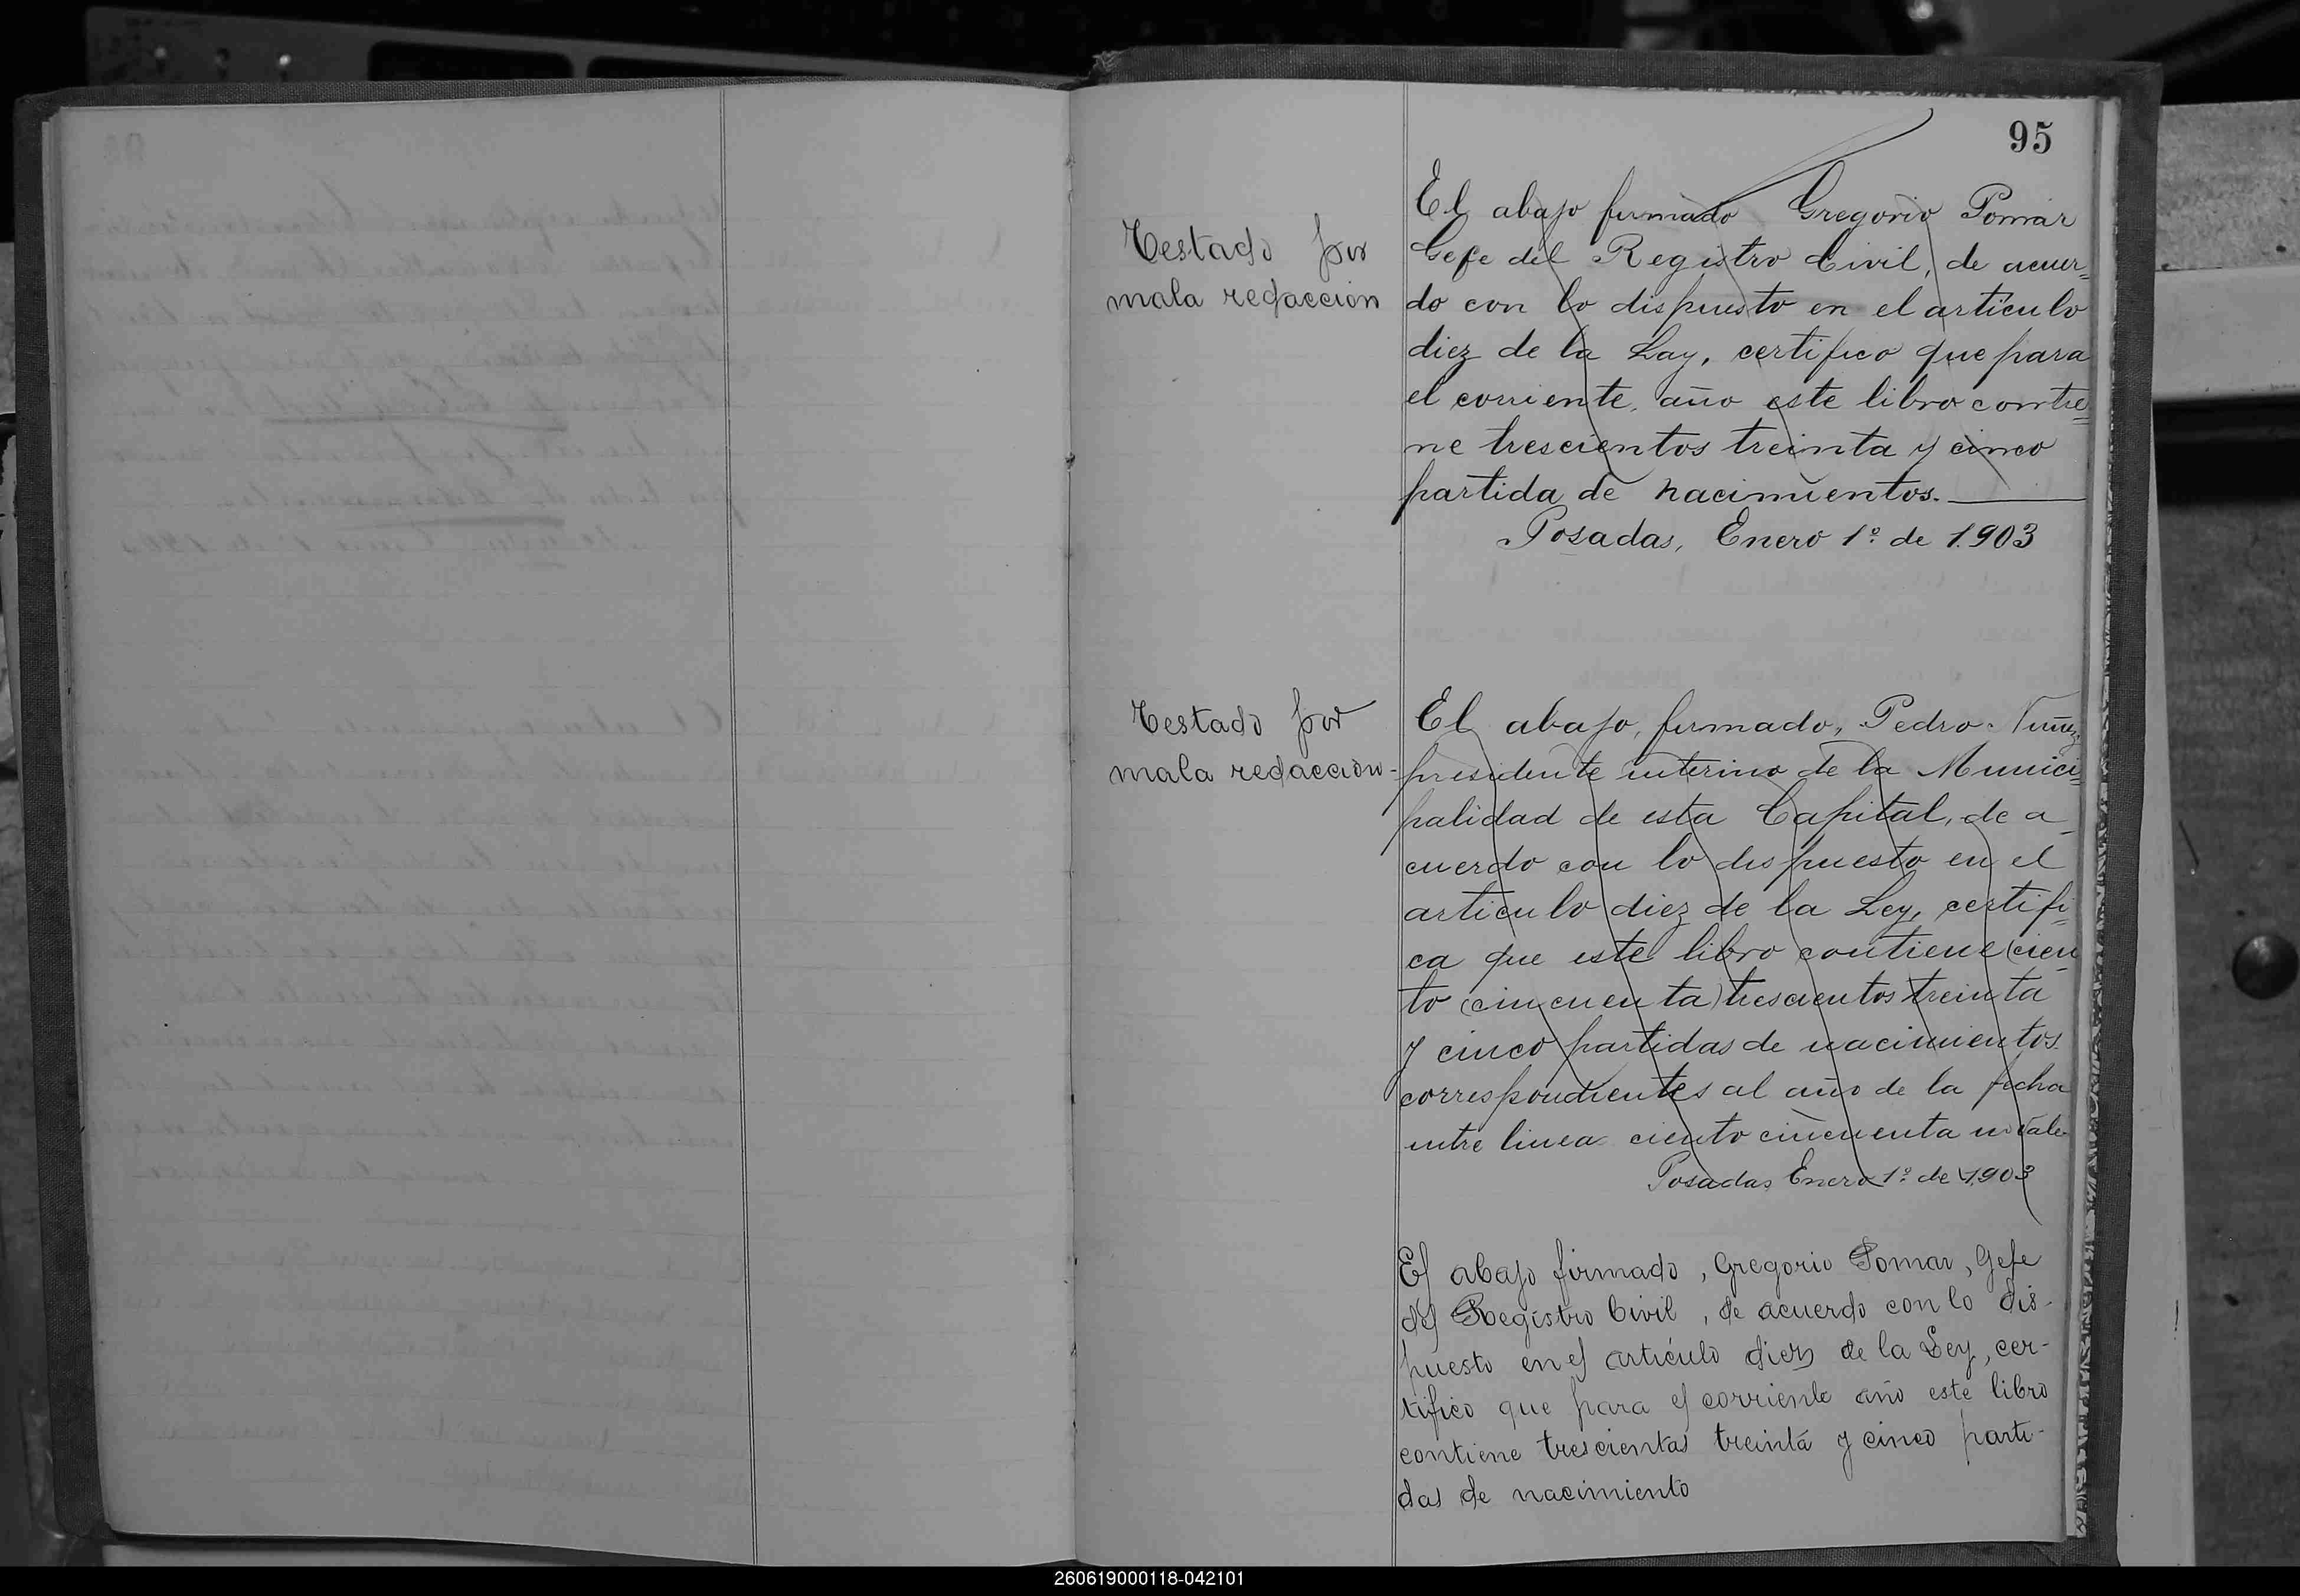 95
Testado por
mala redacción
El abajo firmado Gregorio Pomar
Gefe del Registro Civil, de acuer=
do con lo dispuesto en el artículo
diez de la Lay, certifico que para
el corriente año este libro contie=
ne trescientos treinta y cinco
partida de nacimientos.
Posadas, Enero 1º de 1.903
Testado por
mala redaccion-
El abajo, firmado, Pedro Nuñez
presidente interino de la Munici=
palidad de esta Capital, de a
cuerdo con lo dispuesto en el
articulo diez de la Ley, certifi=
ca que este libro contiene (cien
to (cincuenta) trescientos treinta
y cinco partidas de nacimientos
correspondientes al año de la fecha
entre linea ciento cincuenta
Posadas, Enero 1º de 1.903
El abajo firmado, Gregorio Pomar, Gefe
del Registro Civil, de acuerdo con lo dis-
puesto en el artículo diez de la Ley, cer-
tifico que para el corriente año este libro
contiene trescientas treinta y cinco parti-
das de nacimiento
260619000118-042101